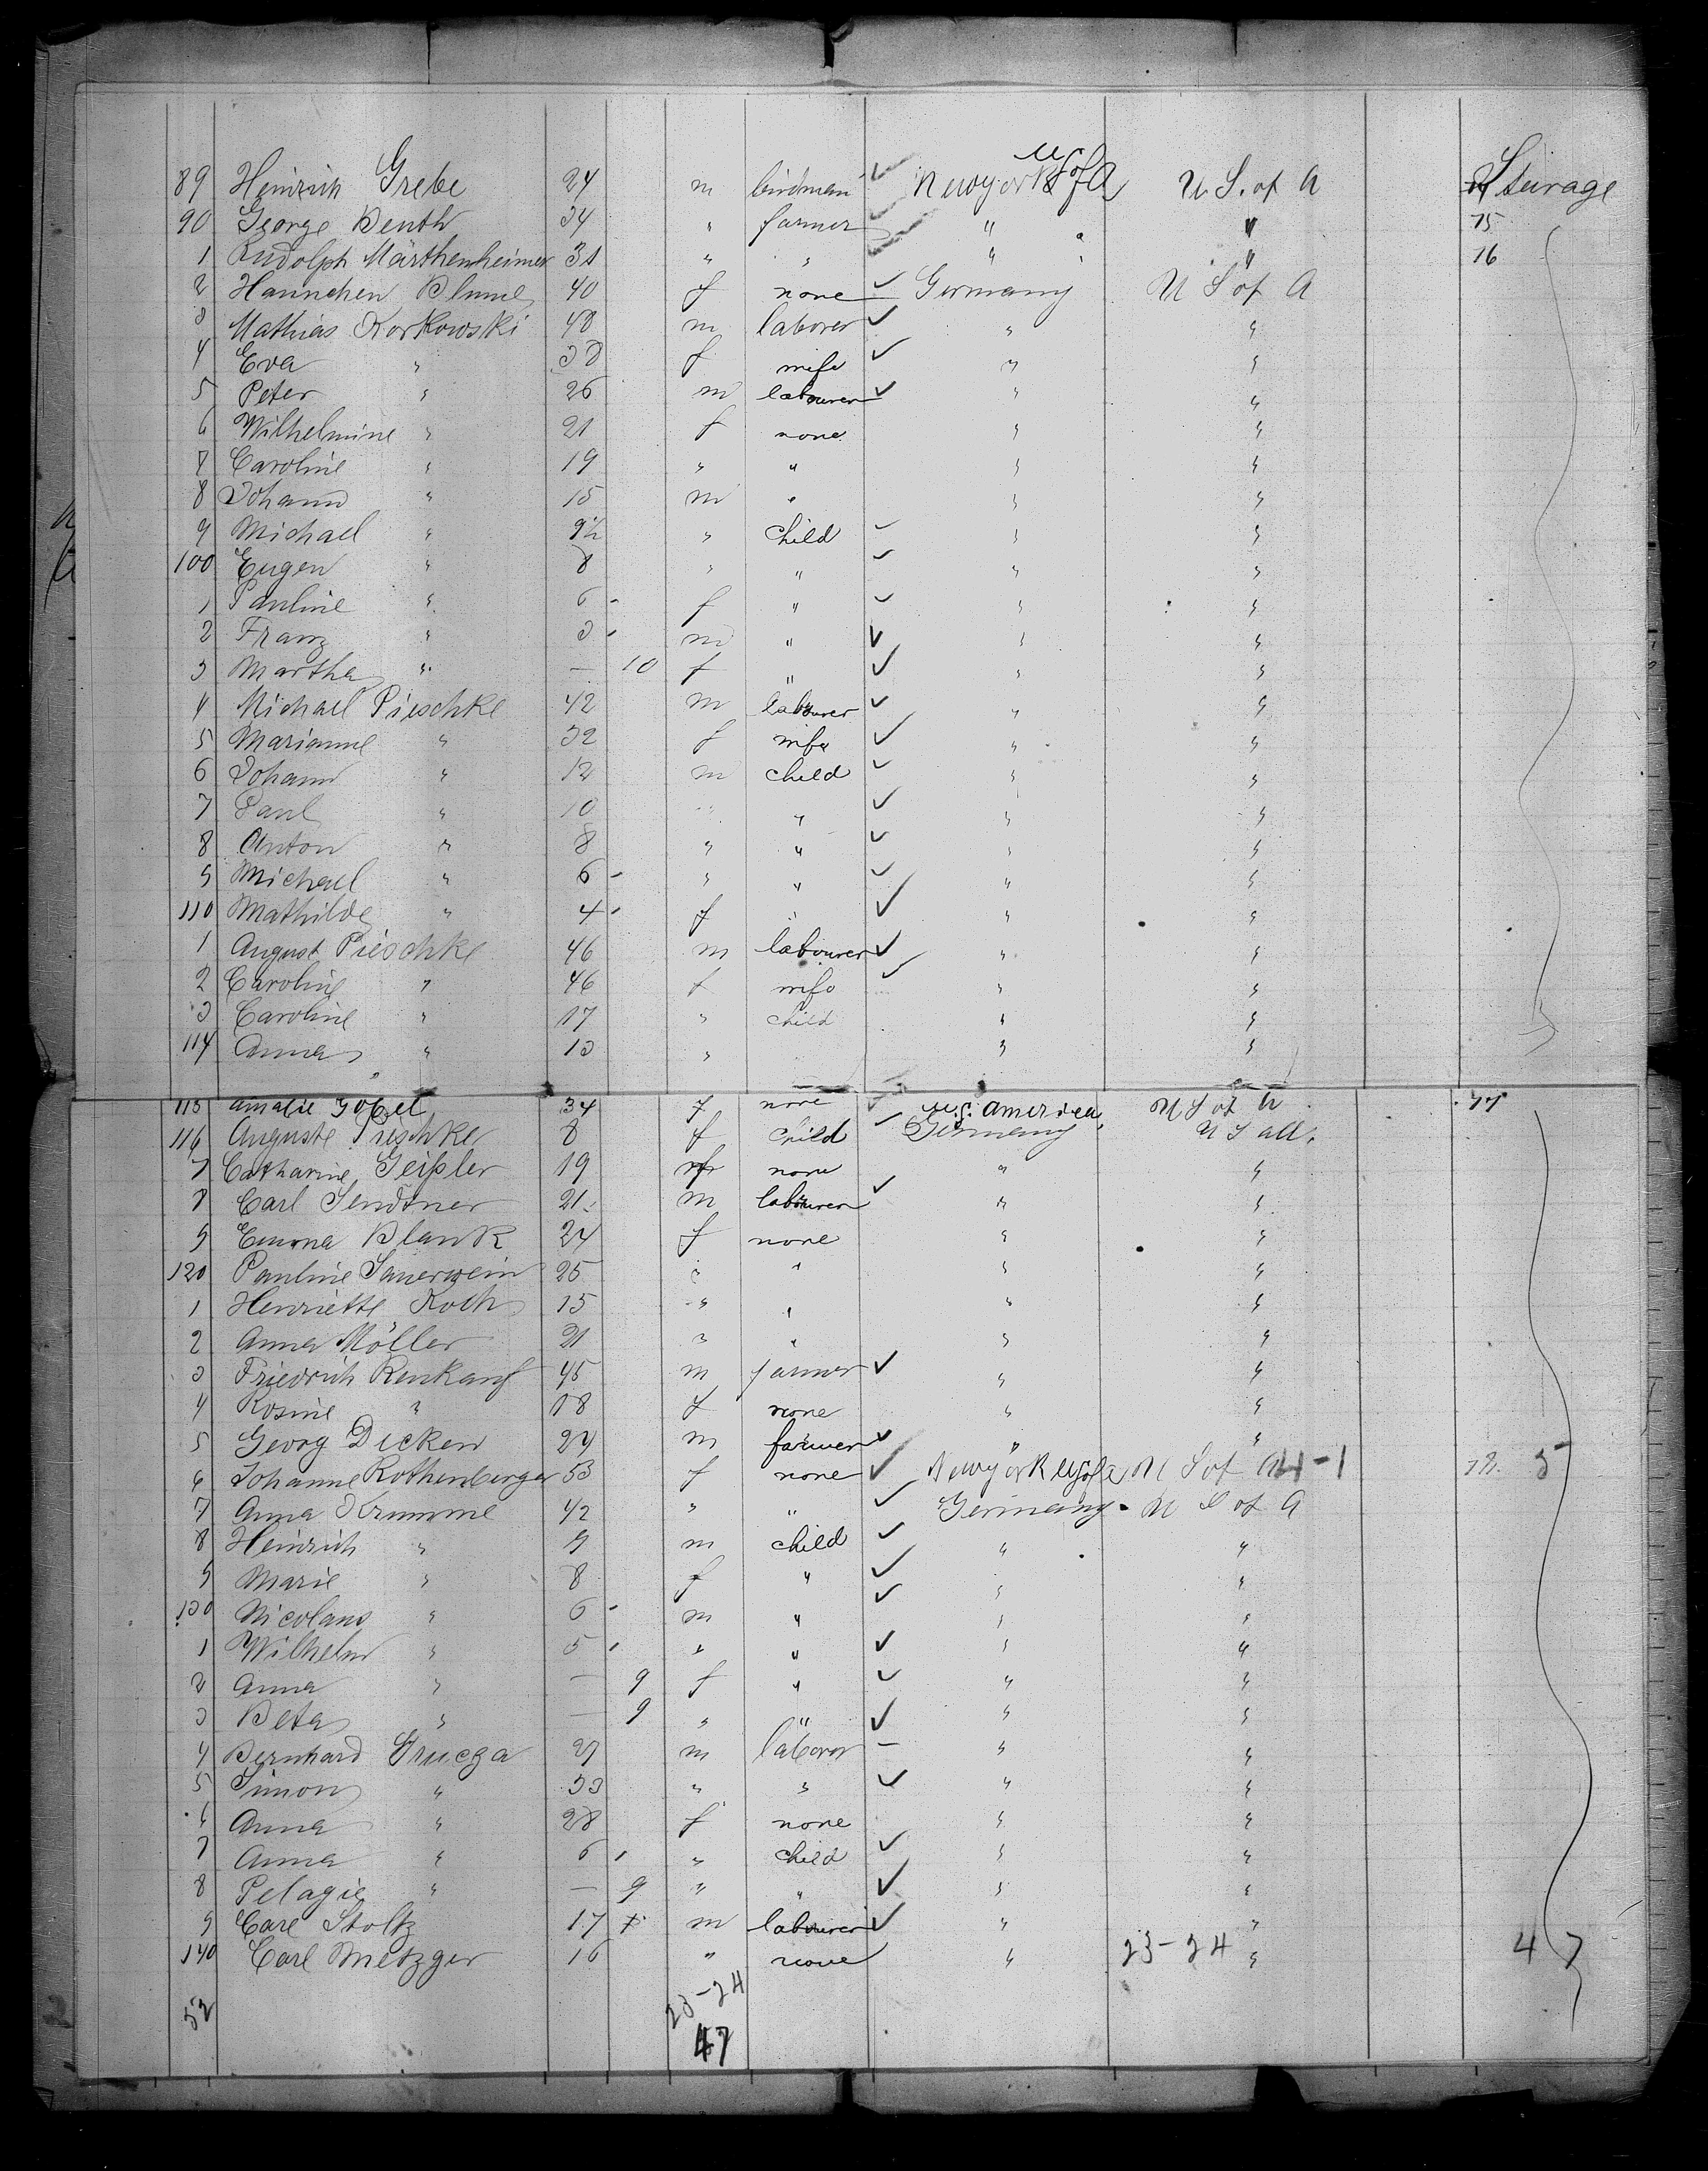 89 Heinrich Grebe 24 m birdman ✓ Newyork US of A U S. of A Steurage
90 George Benth 34 " farmer " " 75
1 Rudolph Märthenheimer 31 " " " " 76
2 Hannchen Blume 40 f none ✓ Germany U S of A
3 Mathias Korkowski 48 m laborer ✓ " "
4 Eva " 38 f wife ✓ " "
5 Peter " 26 m labourer ✓ " "
6 Wilhelmine " 21 f none " "
7 Caroline " 19 " " " "
8 Johann " 15 m " " "
9 Michael " 9½ " child ✓ " "
100 Eugen " 8 " " ✓ " "
1 Pauline " 6 - f " ✓ " "
2 Franz " 3 - m " ✓ " "
3 Martha " — 10 f " ✓ " "
4 Michael Pieschke 42 m labourer ✓ " "
5 Marianne " 32 f wife ✓ " "
6 Johann " 12 m child ✓ " "
7 Paul " 10 " " ✓ " "
8 Anton " 8 " " ✓ " "
9 Michael " 6 - " " ✓ " "
110 Mathilde " 4 - f " ✓ " "
1 August Pieschke 46 m labourer ✓ " "
2 Caroline " 46 f wife ✓ " "
3 Caroline " 17 " child " "
114 Anna " 13 " " "
115 Amalie Gobel 34 f none ✓ U.S. America U S of A 77
116 Auguste Pieschke 8 f child ✓ Germany U S all.
7 Catharine Geißler 19 f none " "
8 Carl Sendtner 21 m labourer ✓ " "
9 Emma Blank 24 f none " "
120 Pauline Sauerwein 25 " " " "
1 Henriette Koch 15 " " " "
2 Anna Möller 21 " " " "
3 Friedrich Renkauf 45 m farmer ✓ " "
4 Rosine " 18 f none " "
5 Georg Dicken 24 m farmer ✓ " "
6 Johanne Rothenberger 53 f none ✓ Newyork US of A U S of A 4-1 78. 5
7 Anna Krumme 42 " " ✓ Germany U S of A
8 Heinrich " 9 m child ✓ " "
9 Marie " 8 f " ✓ " "
130 Nicolaus " 6 - m " ✓ " "
1 Wilhelm " 5 - " " ✓ " "
2 Anna " — 9 f " ✓ " "
3 Beta " — 9 " " ✓ " "
4 Bernhard Grucza 27 m laboror — " "
5 Simon " 33 " " ✓ " "
6 Anna " 28 f none " "
7 Anna " 6 - " child ✓ " "
8 Pelagie " — 9 " " ✓ " "
9 Carl Stoltz 17 + m labourer ✓ " "
140 Carl Metzger 16 " none " 23-24 " 47
52 23-24
47